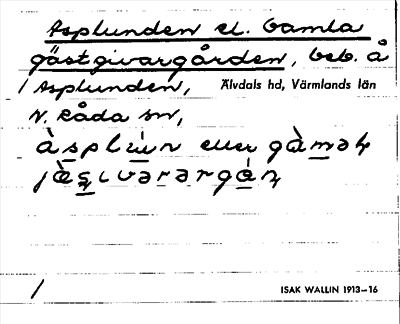 Asplunden el. Gamla
gästgivargården, beb. å
/ Asplunden, Älvdals hd, Värmlands län
N. Råda sn,
àsplu̇n eller gàmaɫ
/ ISAK WALLIN 1913–16